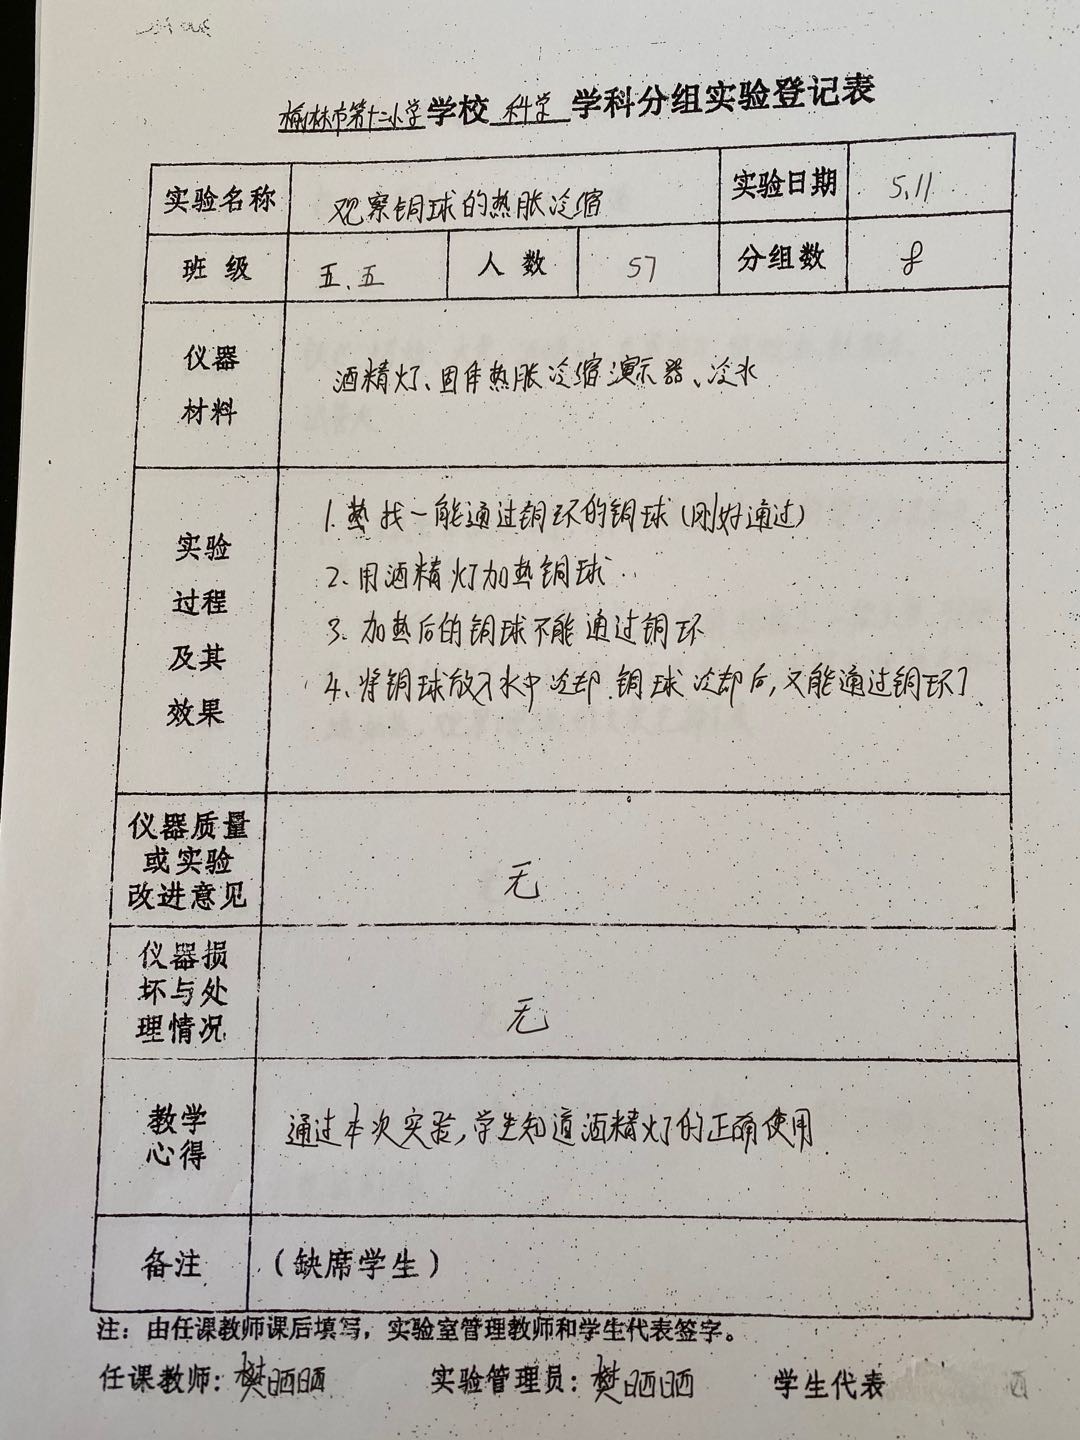 榆林市第十二小学学校 科学 学科分组实验登记表
实验名称 观察铜球的热胀冷缩 实验日期 5.11
班级 五.五 人数 57 分组数 8
仪器材料 酒精灯、固体热胀冷缩演示器、冷水
实验过程及其效果
1. 找一能通过铜环的铜球(刚好通过)
2、用酒精灯加热铜球
3、加热后的铜球不能通过铜环
4、将铜球放入水中冷却.铜球冷却后,又能通过铜环了
仪器质量或实验改进意见 无
仪器损坏与处理情况 无
教学心得 通过本次实验,学生知道酒精灯的正确使用
备注 (缺席学生)
注：由任课教师课后填写，实验室管理教师和学生代表签字。
任课教师：樊晒晒 实验管理员：樊晒晒 学生代表